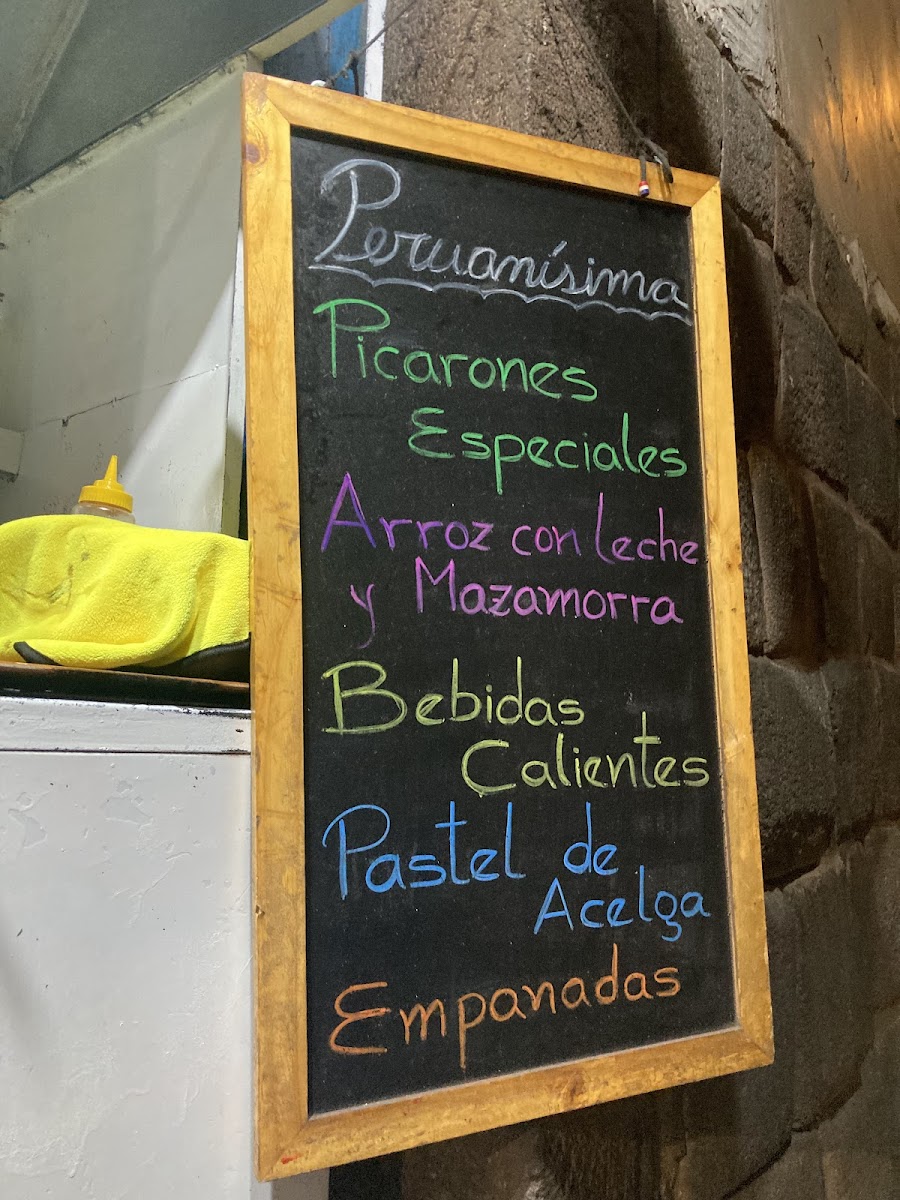 Peruanísima
Picarones
Especiales
Arroz con leche
y Mazamorra
Bebidas
Calientes
Pastel de
Acelga
Empanadas